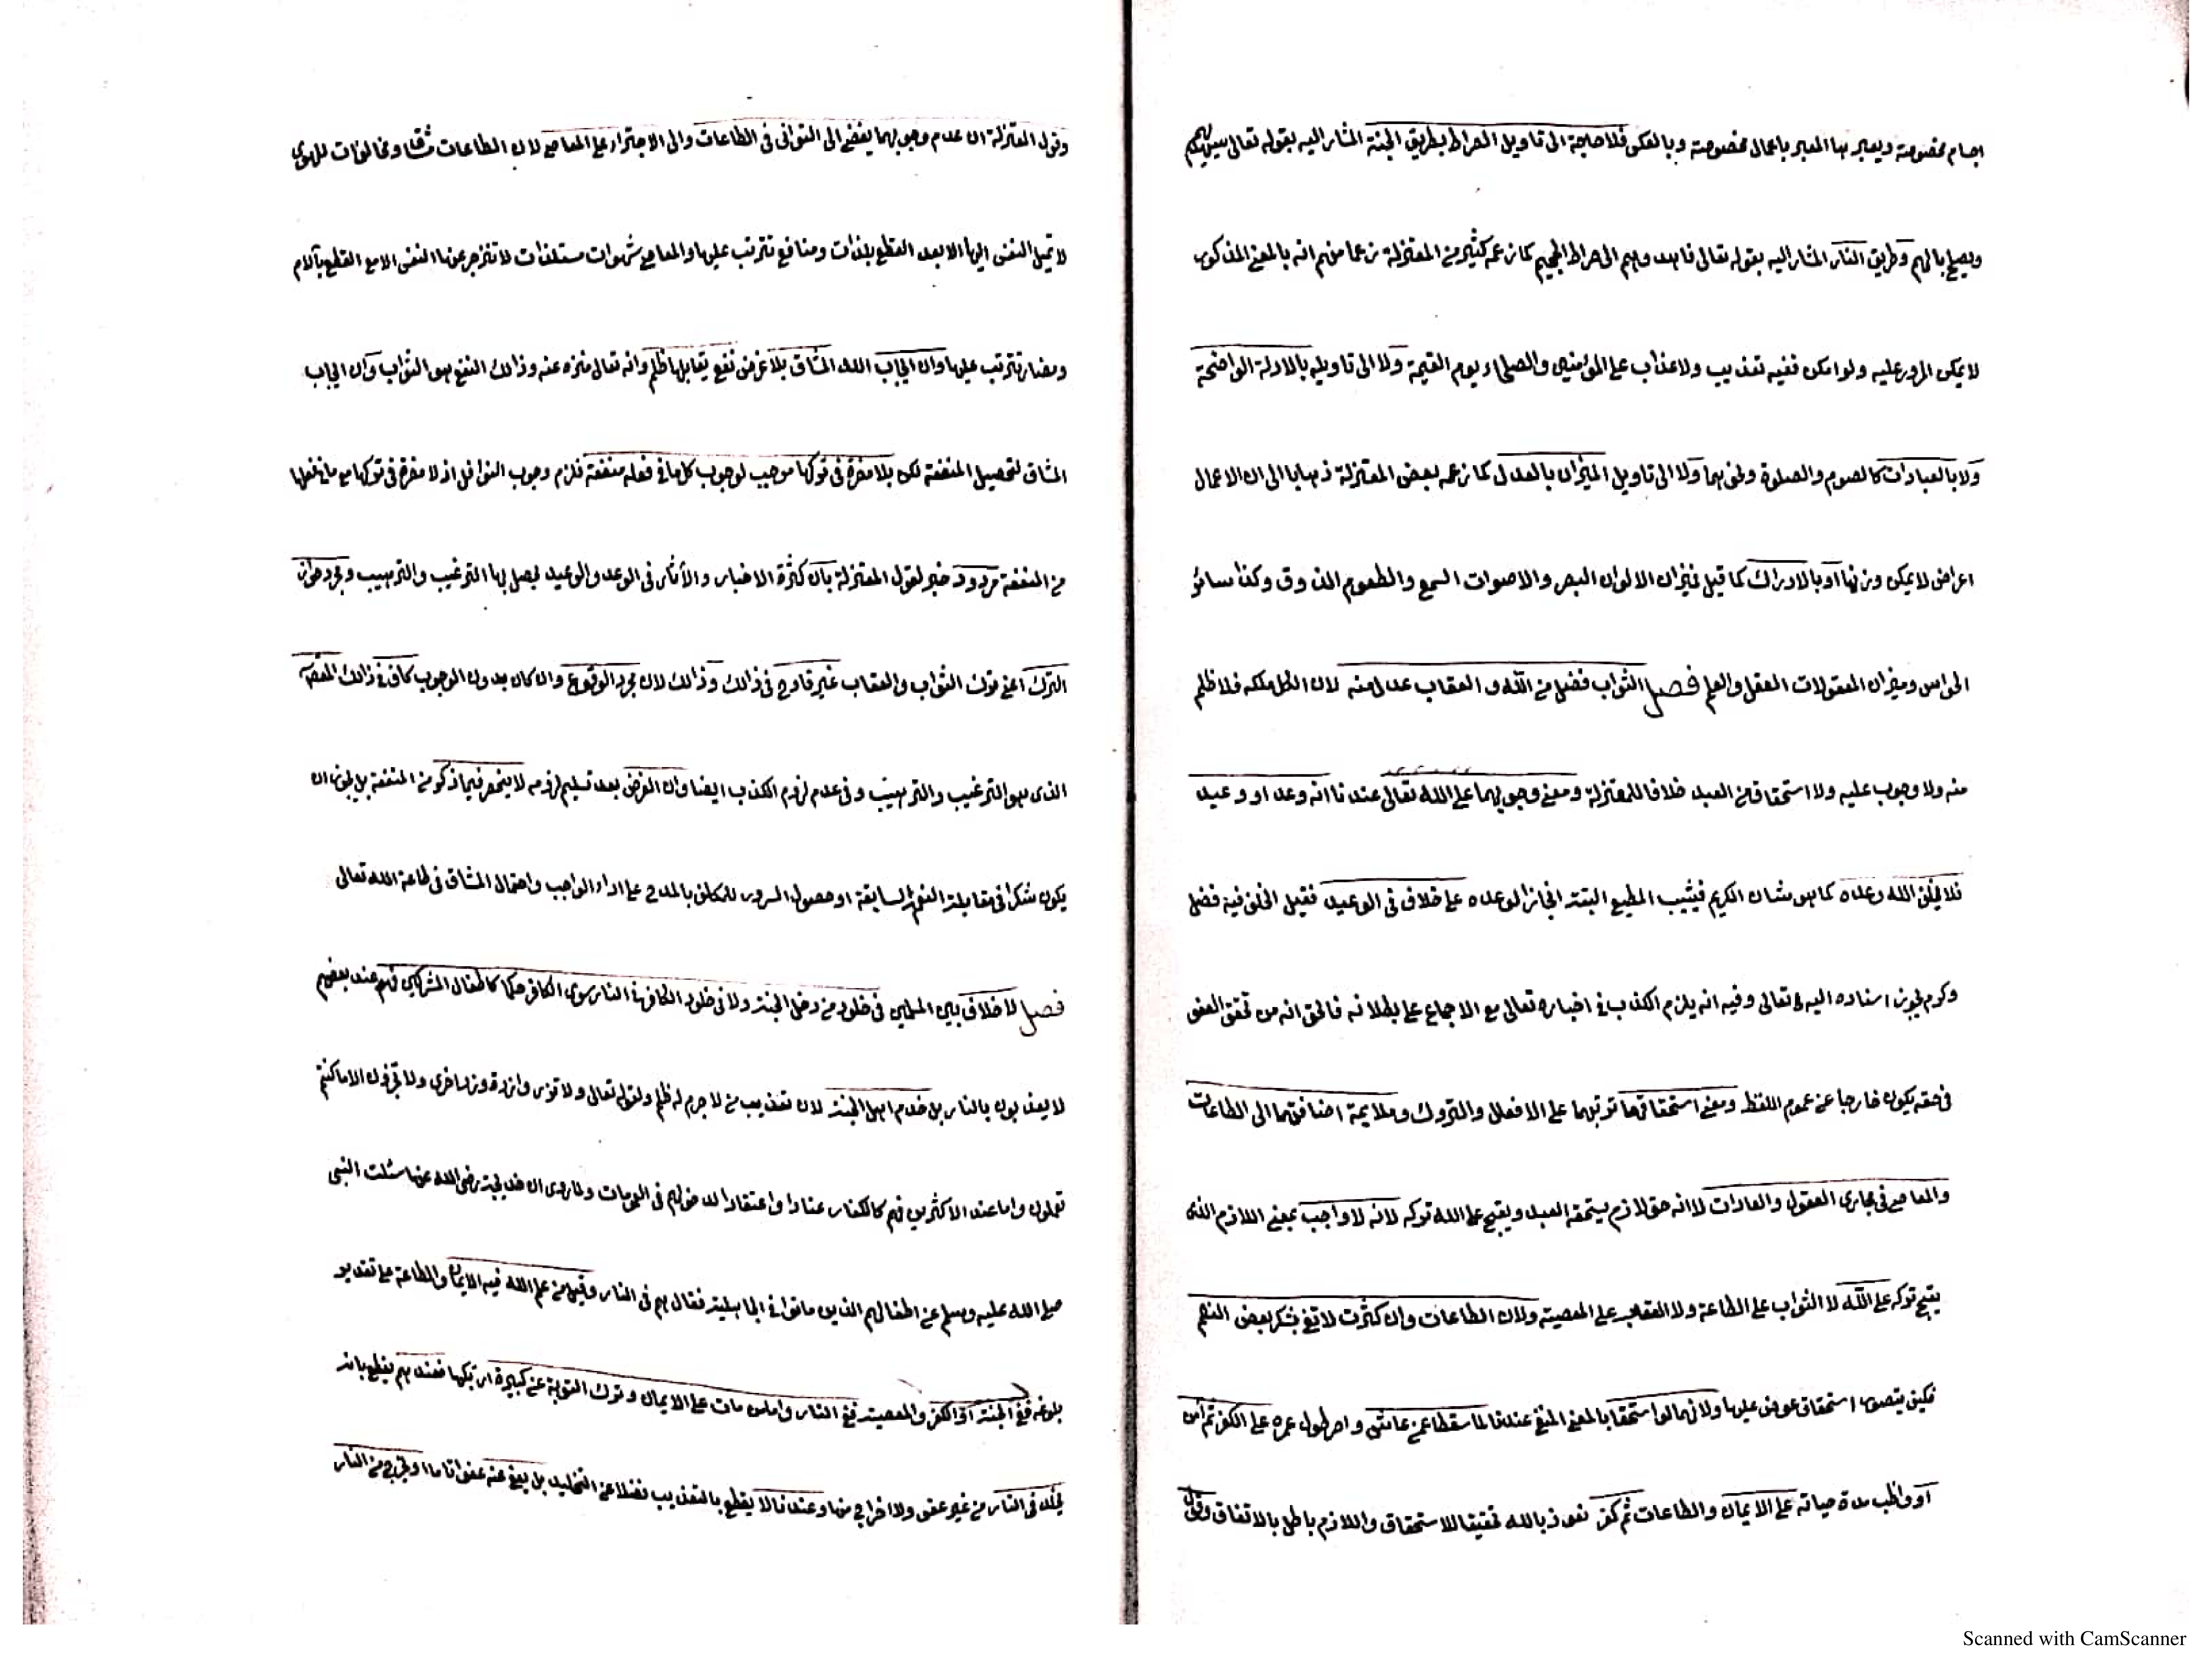 اجسام مخصوصة ويعبر بها المعبر باعمال مخصوصة وبالعكس فلا حاجة الى تاويل الصراط بطريق الجنة المشار اليه بقوله تعالى سيهديهم
ويصلح بالهم وطريق النار المشار اليه بقوله تعالى فاهدوهم الى صراط الجحيم كما زعمه كثير من المعتزلة زعما منهم انه بالمعنى المذكور
لا يمكن المرور عليه ولو امكن ففيه تعذيب ولا عذاب على المؤمنين والصلحاء يوم القيمة ولا الى تاويله بالادلة الواضحة
ولا بالعبادات كالصوم والصلوة ونحوهما ولا الى تاويل الميزان بالعدل كما زعمه بعض المعتزلة ذهابا الى ان الاعمال
اعراض لا يمكن وزنها او بالادراك كما قيل فميزان الالوان البصر والاصوات السمع والطعوم الذوق وكذا سائر
الحواس وميزان المعقولات العقل والعلم فصل الثواب فضل من الله والعقاب عدل منه لان الكل ملكه فلا ظلم
منه ولا وجوب عليه ولا استحقاق من العبد خلافا للمعتزلة ومعنى وجوبهما على الله تعالى عندنا انه وعد او وعيد
فلا يخلف الله وعده كما هو شان الكريم فيثيب المطيع البتة انجازا لوعده على خلاف في الوعيد فقيل الخلف فيه فضل
وكرم يجوز اسناده اليه تعالى وفيه انه يلزم الكذب في اخباره تعالى مع الاجماع على بطلانه فالحق انه من تحقق العفو
في حقه يكون خارجا عن عموم اللفظ ومعنى استحقاقهما ترتبهما على الافعال والتروك وملايمة اضافتهما الى الطاعات
والمعاصي في مجارى العقول والعادات لا انه حق لازم يستحقه العبد ويقبح على الله تركه لانه لا واجب بمعنى اللازم الذى
يقبح تركه على الله لا الثواب على الطاعة ولا العقاب على المعصية ولان الطاعات وان كثرت لا تفي بشكر بعض النعم
فكيف يتصور استحقاق عوض عليها ولانهما لو استحقا بالمعنى المنفي عندنا لما سقطا عمن عاش واصر طول عمره على الكفر ثم آمن
او واظب مدة حياته على الايمان والطاعات ثم كفر نعوذ بالله تحقيقا للاستحقاق واللازم باطل بالاتفاق وقول
وقول المعتزلة ان عدم وجوبهما يفضى الى التوانى فى الطاعات والى الاجتراء على المعاصي لان الطاعات مشاق ومخالفات للهوى
لا تميل النفس اليها الا بعد القطع بلذات ومنافع تترتب عليها والمعاصي شهوات مستلذات لا تنزجر عنها النفس الا مع القطع بآلام
ومضار تترتب عليها وان ايجاب الله المشاق بلا غرض نفع يقابلها ظلم وانه تعالى منزه عنه وذالك النفع هو الثواب وان ايجاب
المشاق لتحصيل المنفعة لكن بلا مضرة في تركها موجب لوجوب كل ما في فعله منفعة فلزم وجوب النوافل اذ لا مضرة في تركها مع ما في فعلها
من المنفعة مردود خبر لقول المعتزلة بان كثرة الاخبار والآثار في الوعد والوعيد يحصل بها الترغيب والترهيب ومجرد جواز
الترك اعني ترك الثواب والعقاب غير قادح في ذالك وذالك لان مجرد الوقوع وان كان بدون الوجوب كاف في ذالك المقصد
الذى هو الترغيب والترهيب وفى عدم لزوم الكذب ايضا وان الغرض بعد تسليم لزومه لا ينحصر فيما ذكر من المنفعة بل يجوز ان
يكون شكرا في مقابلة النعم السابقة او حصول السرور للمكلف بالمدح على اداء الواجب واحتمال المشاق في طاعة الله تعالى
فصل لا خلاف بين المسلمين في خلود من دخل الجنة ولا في خلود الكافر في النار سوى الكافر حكما كاطفال المشركين فهم عند بعضهم
لا يعذبون بالنار بل خدم اهل الجنة لان تعذيب من لا جرم له ظلم ولقوله تعالى ولا تزر وازرة وزر اخرى ولا تجزون الا ما كنتم
تعملون واما عند الاكثرين فهم كالكفار عنادا واعتقادا لدخولهم في العمومات ولما روى ان خديجة رضي الله عنها سئلت النبى
صلى الله عليه وسلم عن اطفالهم الذين ماتوا في الجاهلية فقال هم في النار وقيل من علم الله فيه الايمان والطاعة على تقدير
بلوغه ففي الجنة او الكفر والمعصية ففي النار واما من مات على الايمان وترك التوبة عن كبيرة ارتكبها فعندهم يقطع بانه
يخلد في النار من غير عفو ولا اخراج منها وعندنا لا يقطع بالتعذيب فضلا عن التخليد بل يعفى عنه عفوا تاما او يخرج من النار
Scanned with CamScanner